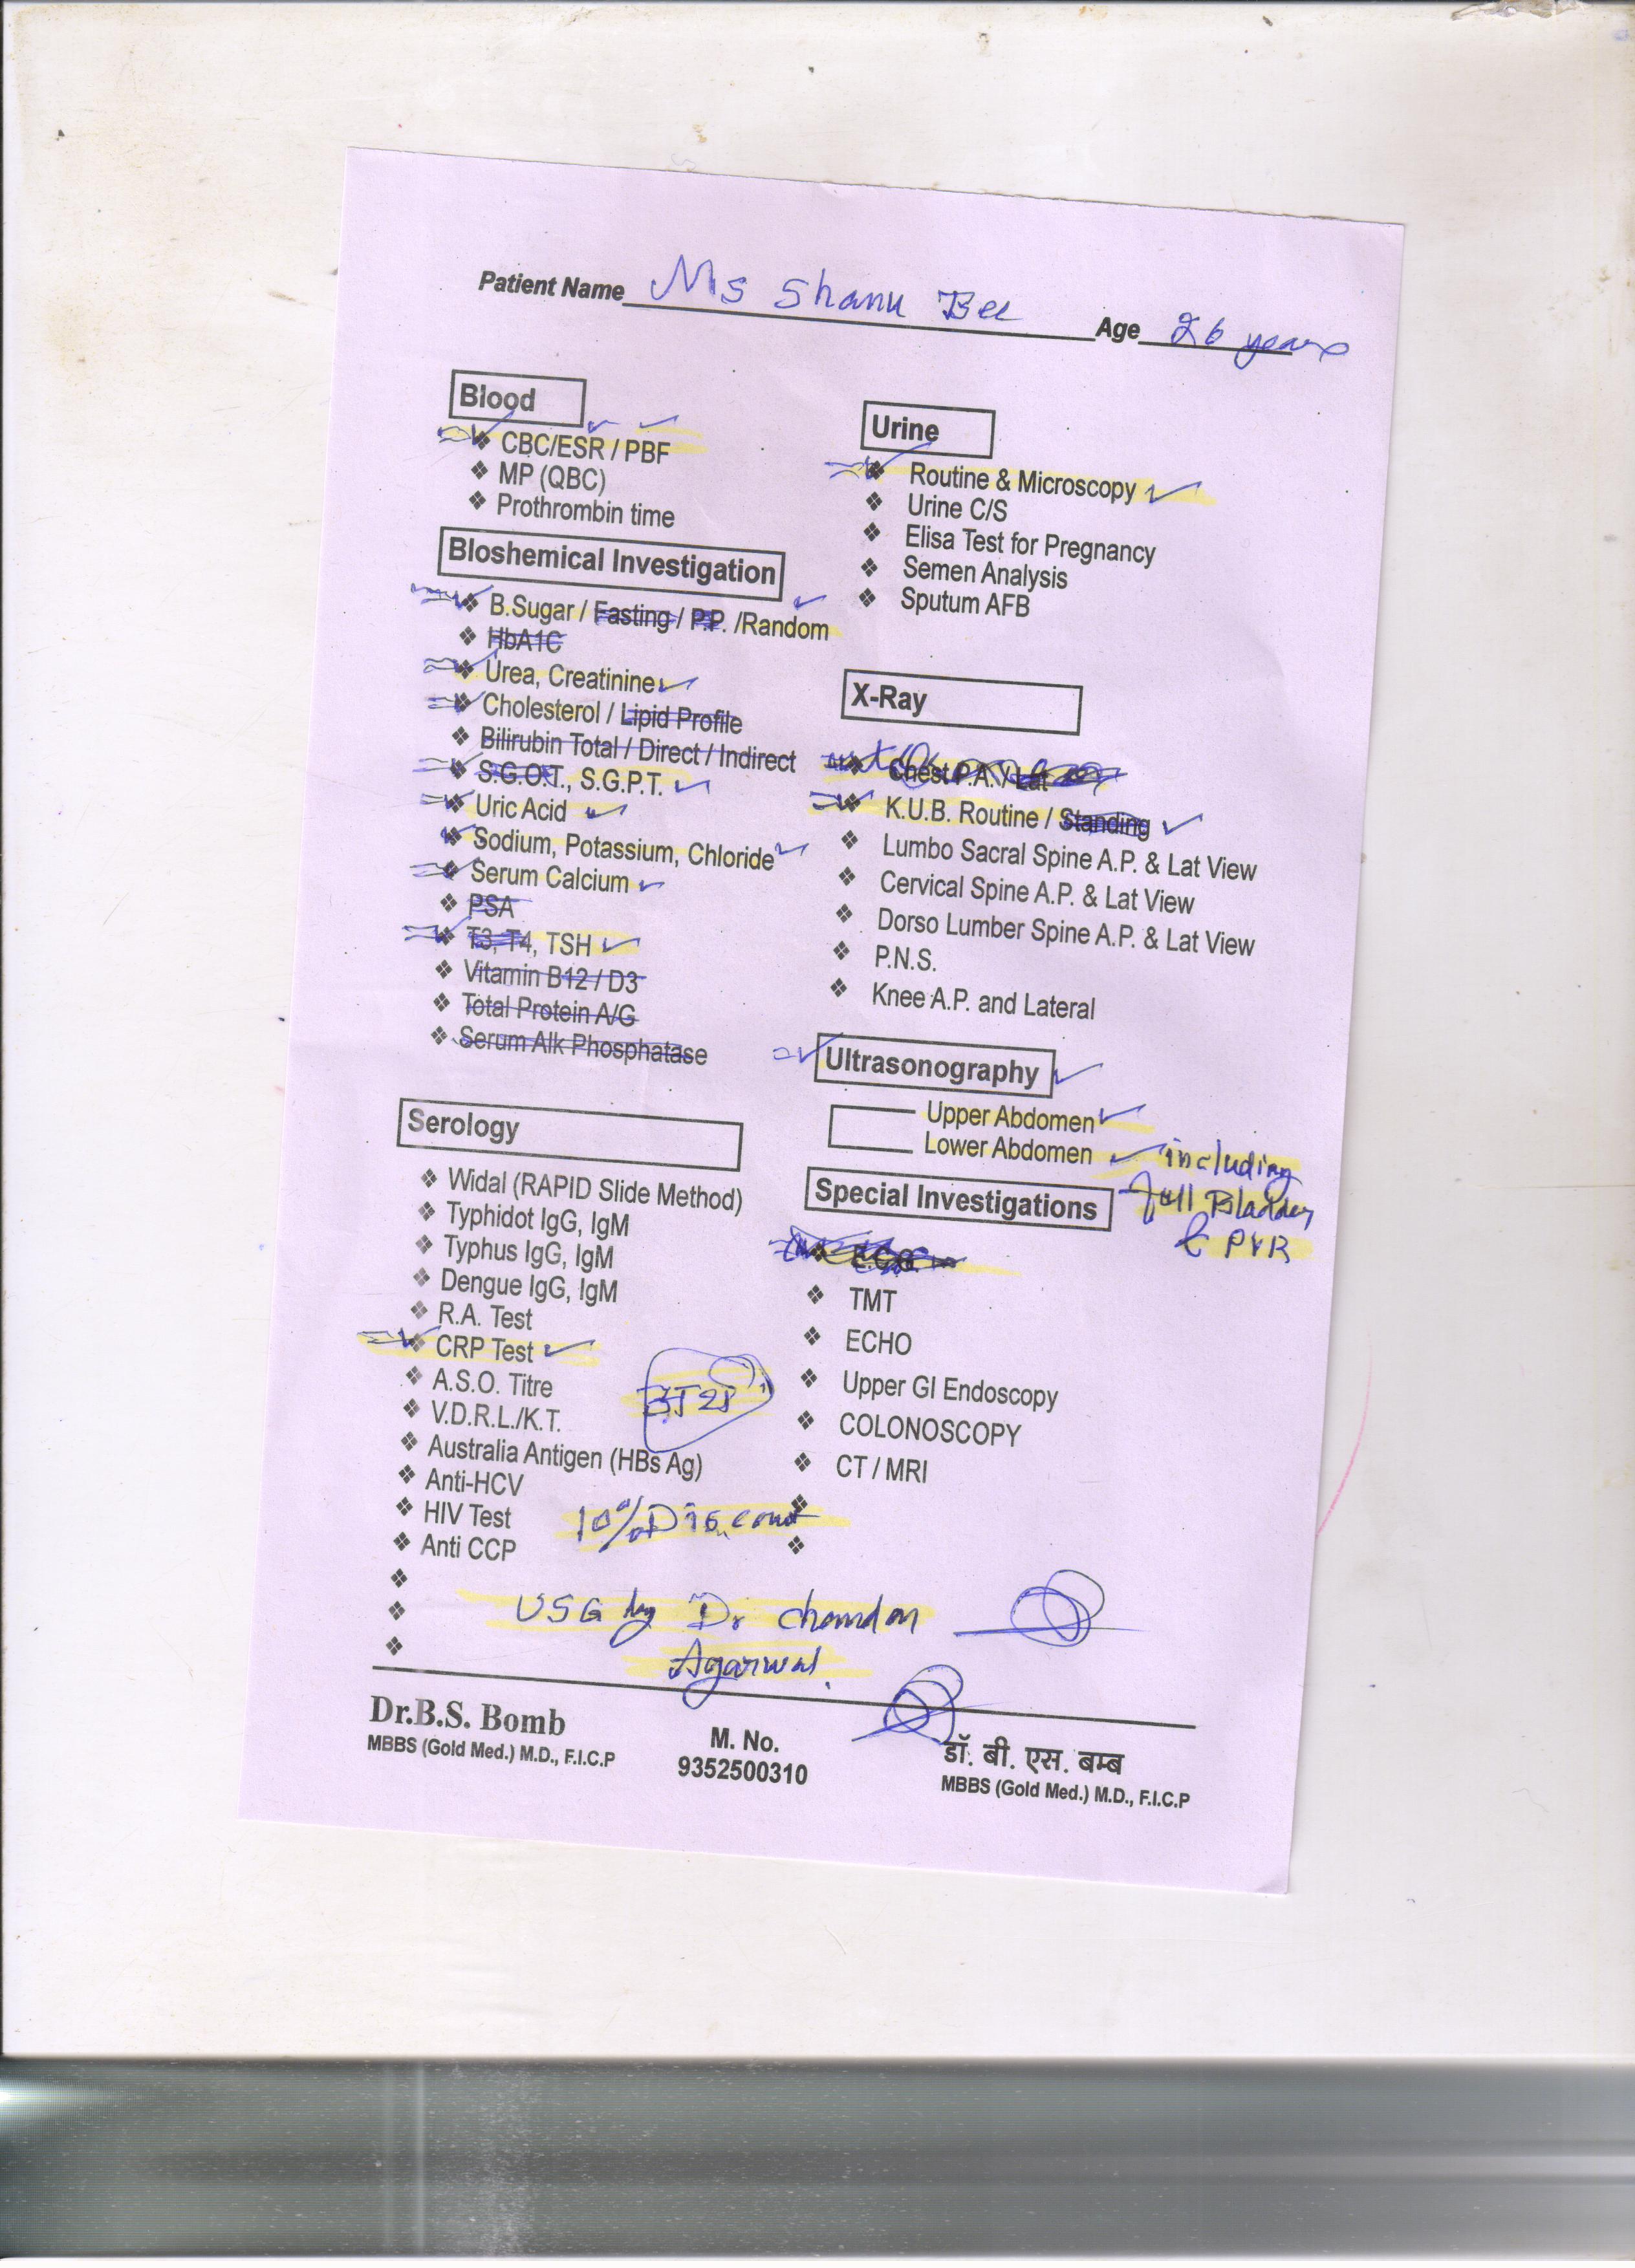 Patient Name Ms Shanu Bee Age 26 years
Blood
CBC/ESR / PBF
MP (QBC)
Prothrombin time
Bloshemical Investigation
B.Sugar / Fasting / P.P. /Random
HbA1C
Urea, Creatinine
Cholesterol / Lipid Profile
Bilirubin Total / Direct / Indirect
S.G.O.T., S.G.P.T.
Uric Acid
Sodium, Potassium, Chloride
Serum Calcium
PSA
T3, T4, TSH
Vitamin B12 / D3
Total Protein A/G
Serum Alk Phosphatase
Serology
Widal (RAPID Slide Method)
Typhidot IgG, IgM
Typhus IgG, IgM
Dengue IgG, IgM
R.A. Test
CRP Test
A.S.O. Titre
V.D.R.L./K.T.
Australia Antigen (HBs Ag)
Anti-HCV
HIV Test
Anti CCP
10% Discount
Urine
Routine & Microscopy
Urine C/S
Elisa Test for Pregnancy
Semen Analysis
Sputum AFB
X-Ray
Chest P.A. / Lat
K.U.B. Routine / Standing
Lumbo Sacral Spine A.P. & Lat View
Cervical Spine A.P. & Lat View
Dorso Lumber Spine A.P. & Lat View
P.N.S.
Knee A.P. and Lateral
Ultrasonography
Upper Abdomen
Lower Abdomen including
full Bladder
& PVR
Special Investigations
E.C.G.
TMT
ECHO
Upper GI Endoscopy
COLONOSCOPY
CT / MRI
USG by Dr Chandan
Agarwal.
Dr.B.S. Bomb
MBBS (Gold Med.) M.D., F.I.C.P
M. No.
9352500310
डॉ. बी. एस. बम्ब
MBBS (Gold Med.) M.D., F.I.C.P